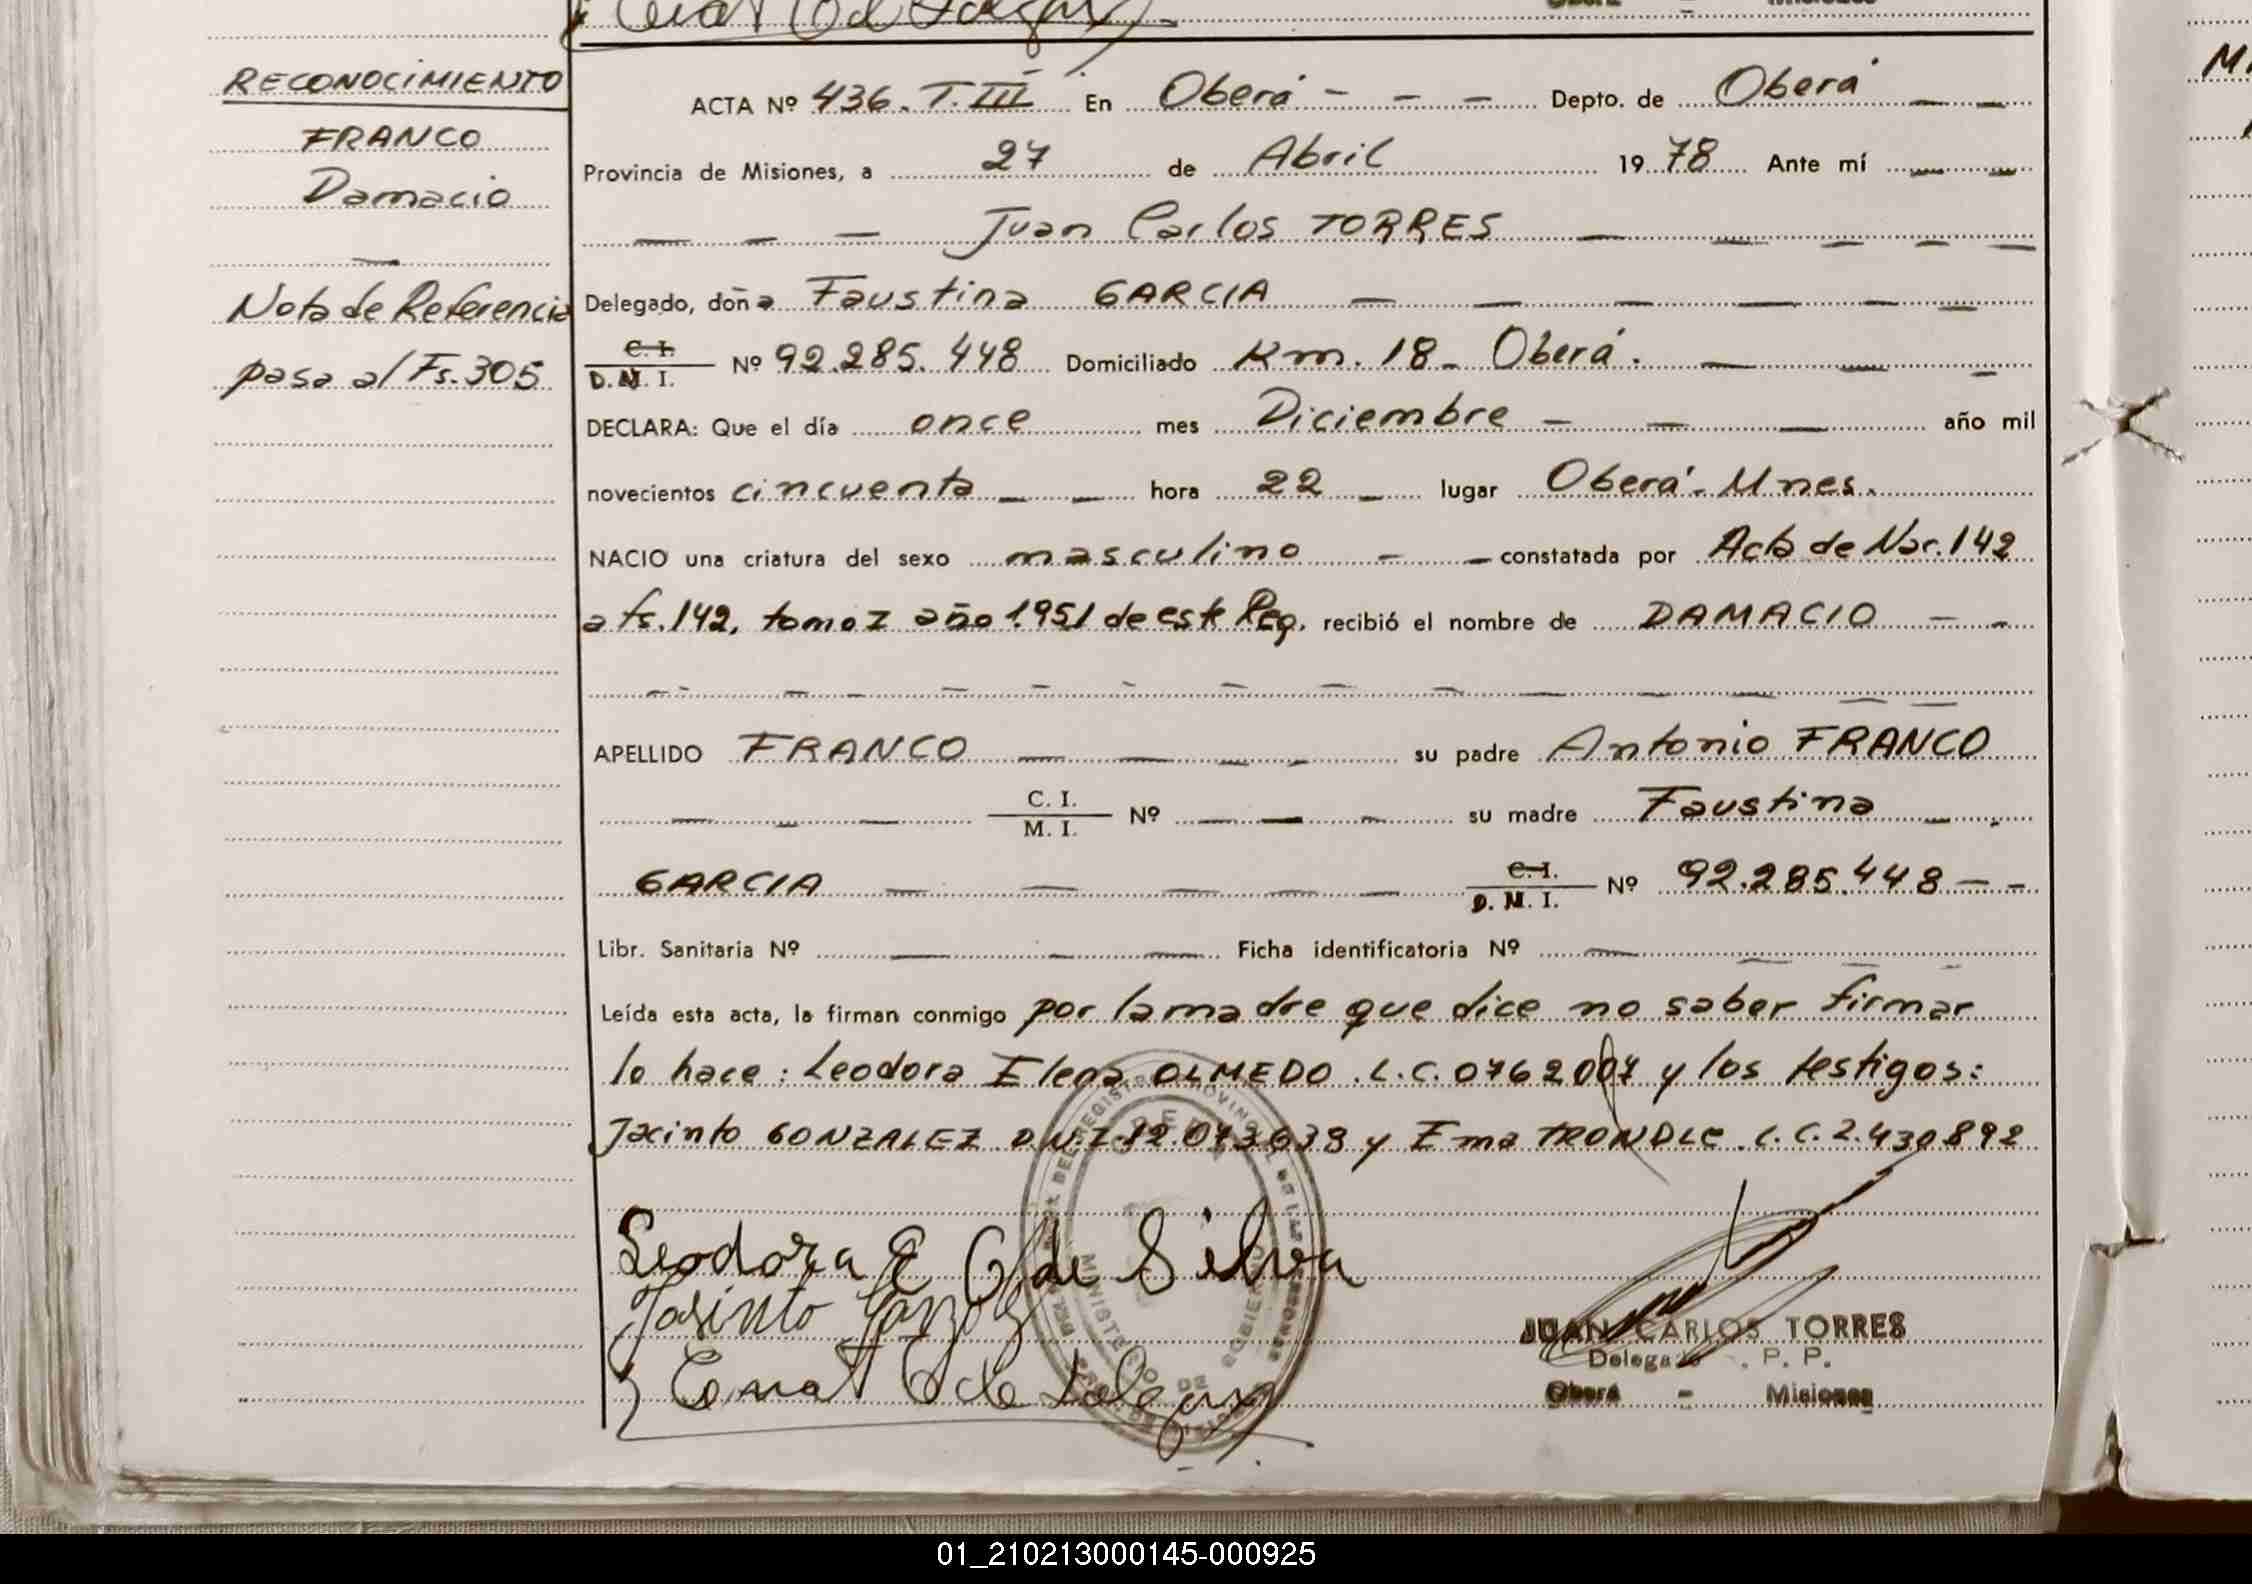 Oberá - Misiones
RECONOCIMIENTO
FRANCO
Damacio
Nota de Referencia
pasa al Fs. 305
ACTA Nº 436. T. III En Oberá - - - Depto. de Oberá — —
Provincia de Misiones, a 27 de Abril 1978 Ante mí — —
— — — Juan Carlos TORRES — — — — —
Delegado, doña Faustina GARCIA — — — — — —
C. I. / D. N. I. Nº 92.285.448 Domiciliado Km. 18 - Oberá. — — —
DECLARA: Que el día once mes Diciembre — — — año mil
novecientos cincuenta — — hora 22 — lugar Oberá - Mnes.
NACIO una criatura del sexo masculino - — constatada por Acta de Nac. 142
a fs. 142, tomo I año 1.951 de este Reg. recibió el nombre de DAMACIO — -
APELLIDO FRANCO — — — — su padre Antonio FRANCO
— — — C. I. / M. I. Nº — — — su madre Faustina — -
GARCIA — — — — — C. I. / D. N. I. Nº 92.285.448 - -
Libr. Sanitaria Nº — — — Ficha identificatoria Nº — — — —
Leída esta acta, la firman conmigo por la madre que dice no saber firmar
lo hace: Leodora Elena OLMEDO. L.C. 0762007 y los testigos:
Jacinto GONZALEZ D.N.I. 12.073.639 y Ema TRONDLE. L.C. 2.430892
Leodora E O de Silva
Jasinto Gonzalez
Ema T
JUAN CARLOS TORRES
Delegado R. P. P.
Oberá - Misiones
01_210213000145-000925